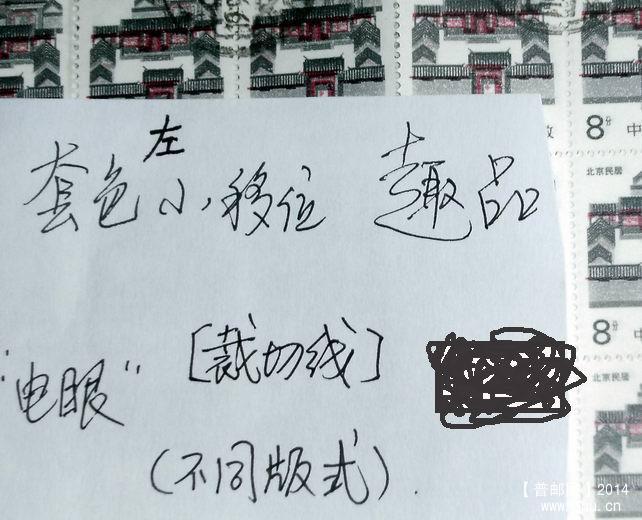 左
套色小移位 趣品
"电眼" [裁切线]
(不同版式).
8分 中
北京民居
8分 中
北京民居
【普邮 】2014